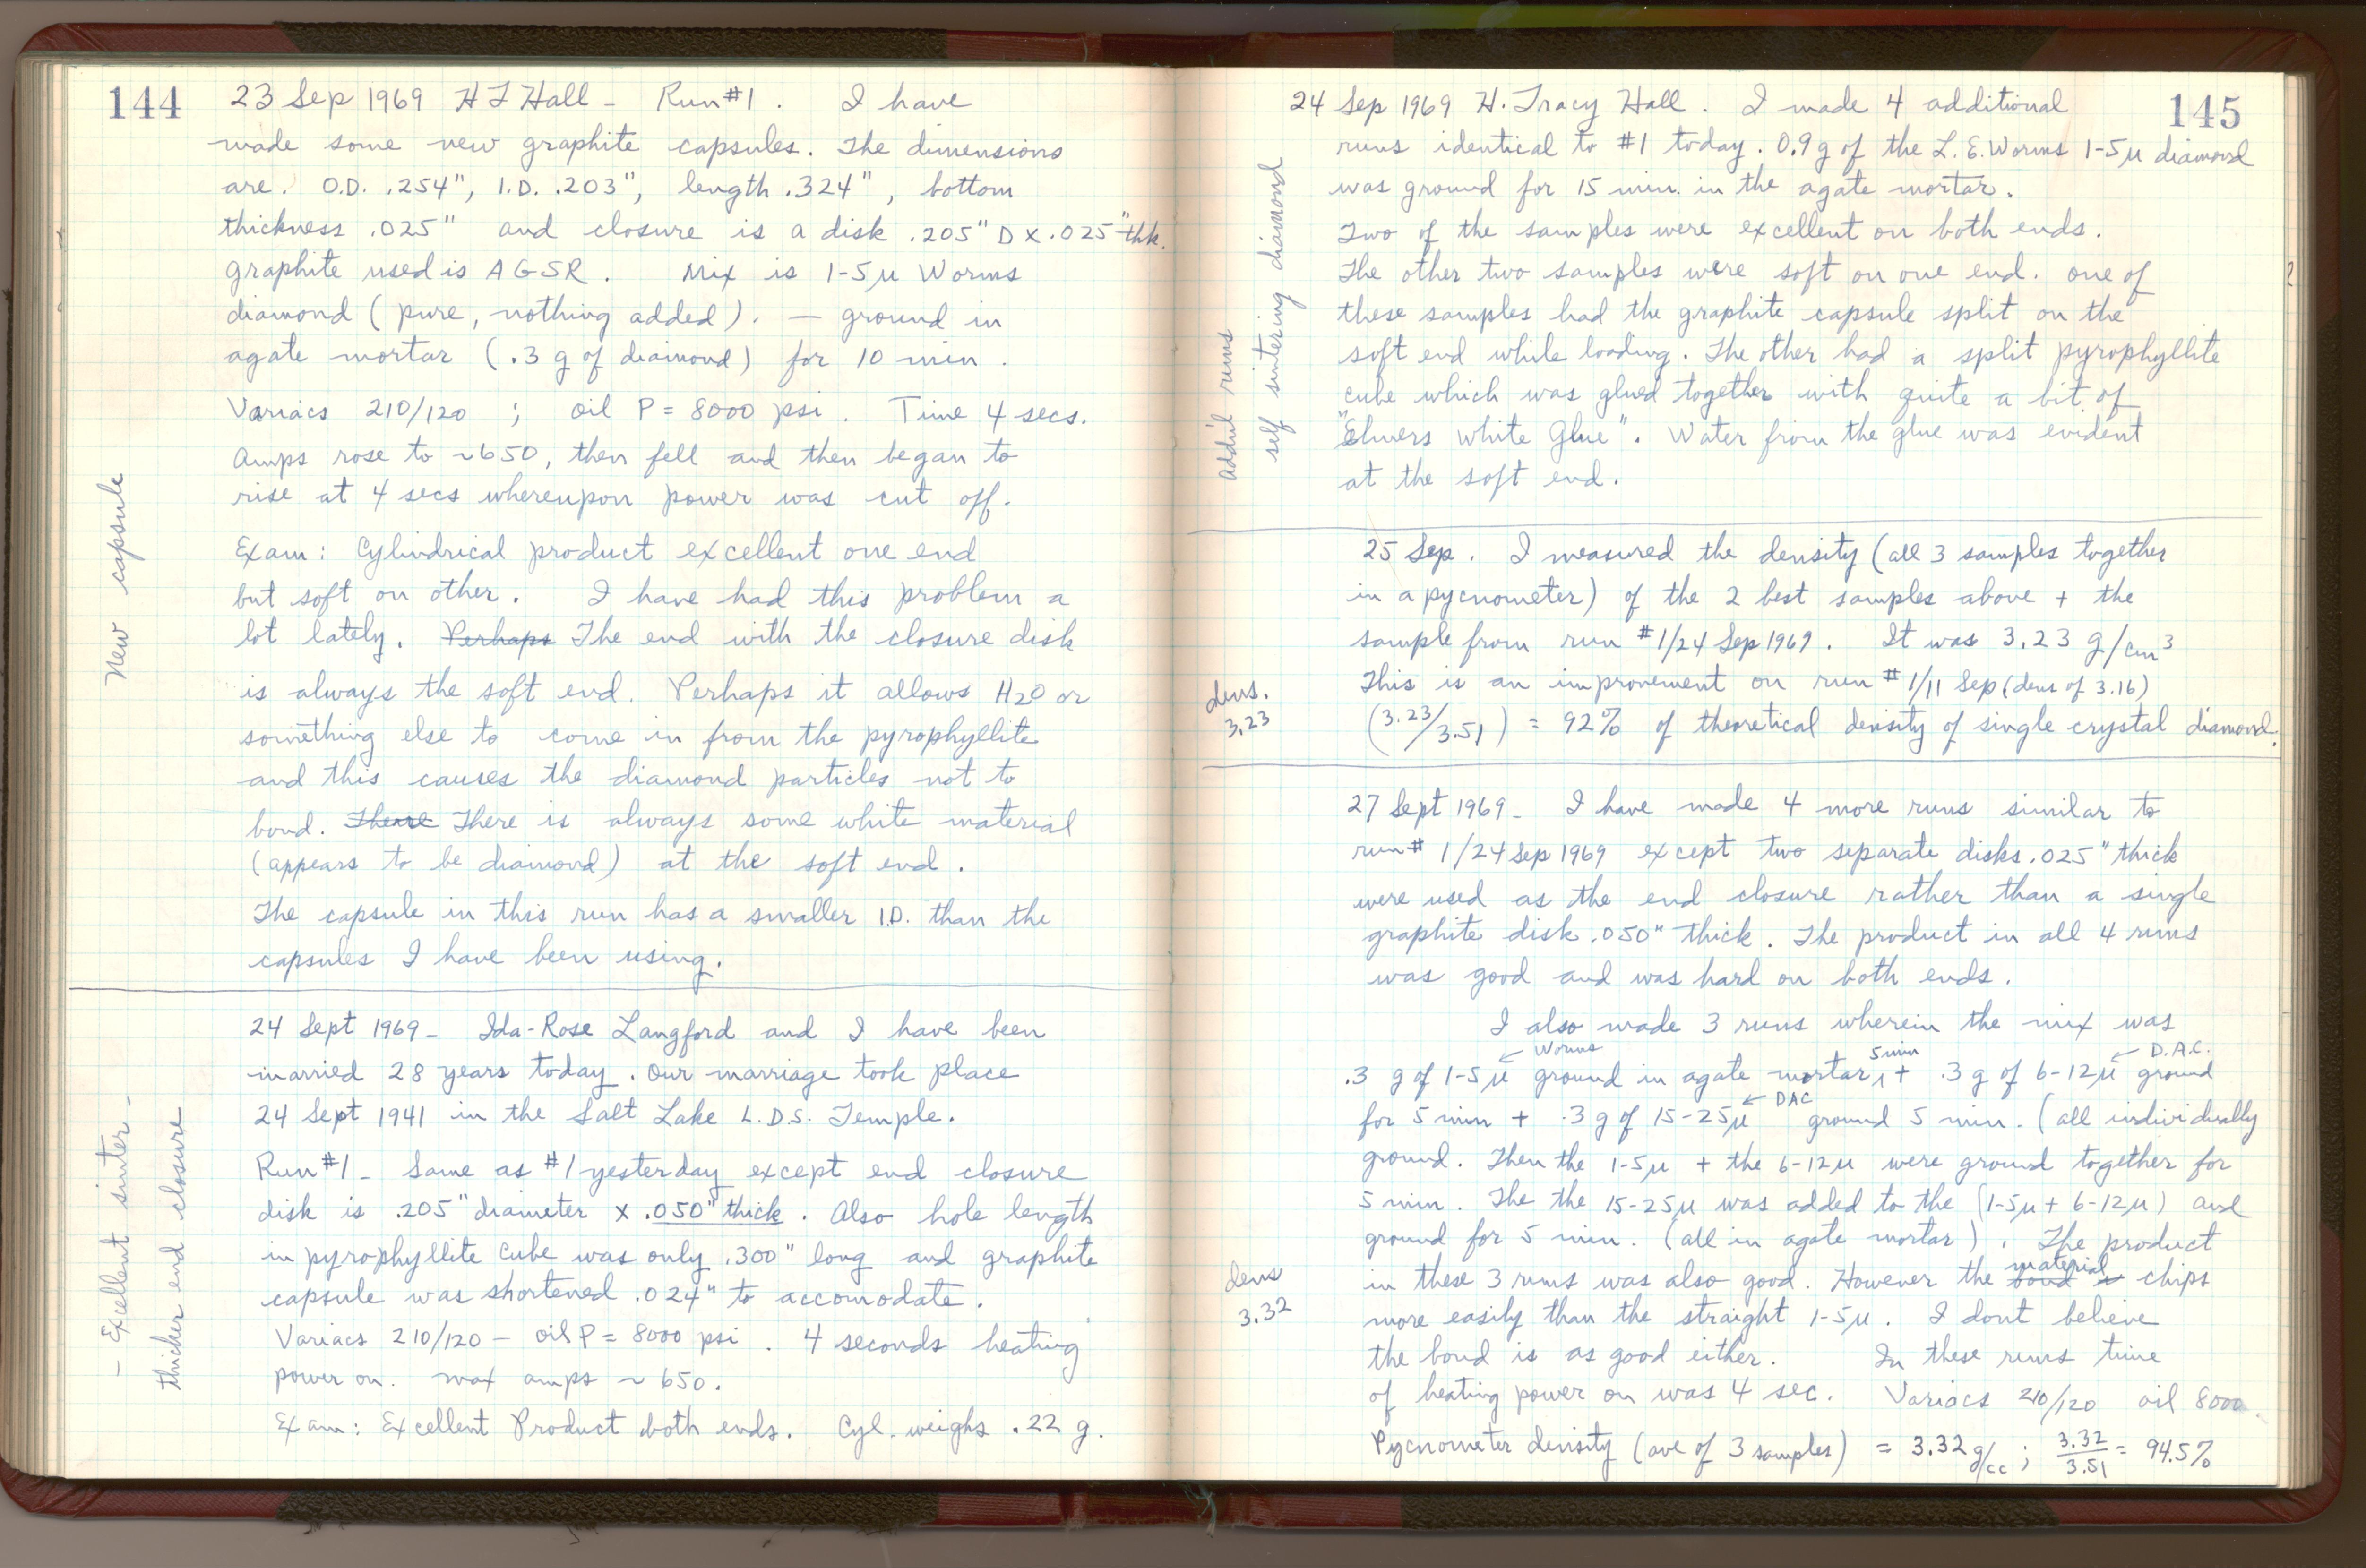 144
23 Sep 1969 H T Hall - Run #1. I have
made some new graphite capsules. The dimensions
are. O.D. .254", I.D. .203", length .324", bottom
thickness .025" and closure is a disk .205" D x .025" thk.
graphite used is AGSR. Mix is 1-5μ Worms
diamond (pure, nothing added). — ground in
agate mortar (.3 g of diamond) for 10 min.
Variacs 210/120 ; oil P = 8000 psi. Time 4 secs.
Amps rose to ~650, then fell and then began to
rise at 4 secs whereupon power was cut off.
New capsule
Exam: Cylindrical product excellent one end
but soft on other. I have had this problem a
lot lately. Perhaps The end with the closure disk
is always the soft end. Perhaps it allows H2O or
something else to come in from the pyrophyllite
and this causes the diamond particles not to
bond. There is always some white material
(appears to be diamond) at the soft end.
The capsule in this run has a smaller I.D. than the
capsules I have been using.
24 Sept 1969 - Ida-Rose Langford and I have been
married 28 years today. Our marriage took place
24 Sept 1941 in the Salt Lake L.D.S. Temple.
- Excellent sinter -
thicker end closure
Run #1 - Same as #1 yesterday except end closure
disk is .205" diameter x .050" thick. Also hole length
in pyrophyllite cube was only .300" long and graphite
capsule was shortened .024" to accomodate.
Variacs 210/120 - oil P = 8000 psi. 4 seconds heating
power on. max amps ~ 650.
Exam: Excellent Product both ends. Cyl. weighs .22 g.
145
24 Sep 1969 H. Tracy Hall. I made 4 additional
runs identical to #1 today. 0.9 g of the L.E. Worms 1-5μ diamond
was ground for 15 min. in the agate mortar.
Two of the samples were excellent on both ends.
The other two samples were soft on one end. one of
these samples had the graphite capsule split on the
soft end while loading. The other had a split pyrophyllite
cube which was glued together with quite a bit of
"Elmers White Glue". Water from the glue was evident
at the soft end.
Addnl runs
self sintering diamond
25 Sep. I measured the density (all 3 samples together
in a pycnometer) of the 2 best samples above + the
sample from run #1/24 Sep 1969. It was 3.23 g/cm3
This is an improvement on run #1/11 Sep (dens of 3.16)
(3.23/3.51) = 92% of theoretical density of single crystal diamond.
dens.
3.23
27 Sept 1969 - I have made 4 more runs similar to
run # 1/24 Sep 1969 except two separate disks .025" thick
were used as the end closure rather than a single
graphite disk .050" thick. The product in all 4 runs
was good and was hard on both ends.
I also made 3 runs wherein the mix was
← Worms 5 min ← D.A.C.
.3 g of 1-5μ ground in agate mortar, + .3 g of 6-12μ ground
← DAC
for 5 min + .3 g of 15-25μ ground 5 min. (all individually
ground. Then the 1-5μ + the 6-12μ were ground together for
5 min. The the 15-25μ was added to the (1-5μ + 6-12μ) and
ground for 5 min. (all in agate mortar). The product
material
in these 3 runs was also good. However the bond is chips
more easily than the straight 1-5μ. I dont believe
the bond is as good either. In these runs time
of heating power on was 4 sec. Variacs 210/120 oil 8000.
Pycnometer density (ave of 3 samples) = 3.32 g/cc ; 3.32/3.51 = 94.5%
dens
3.32